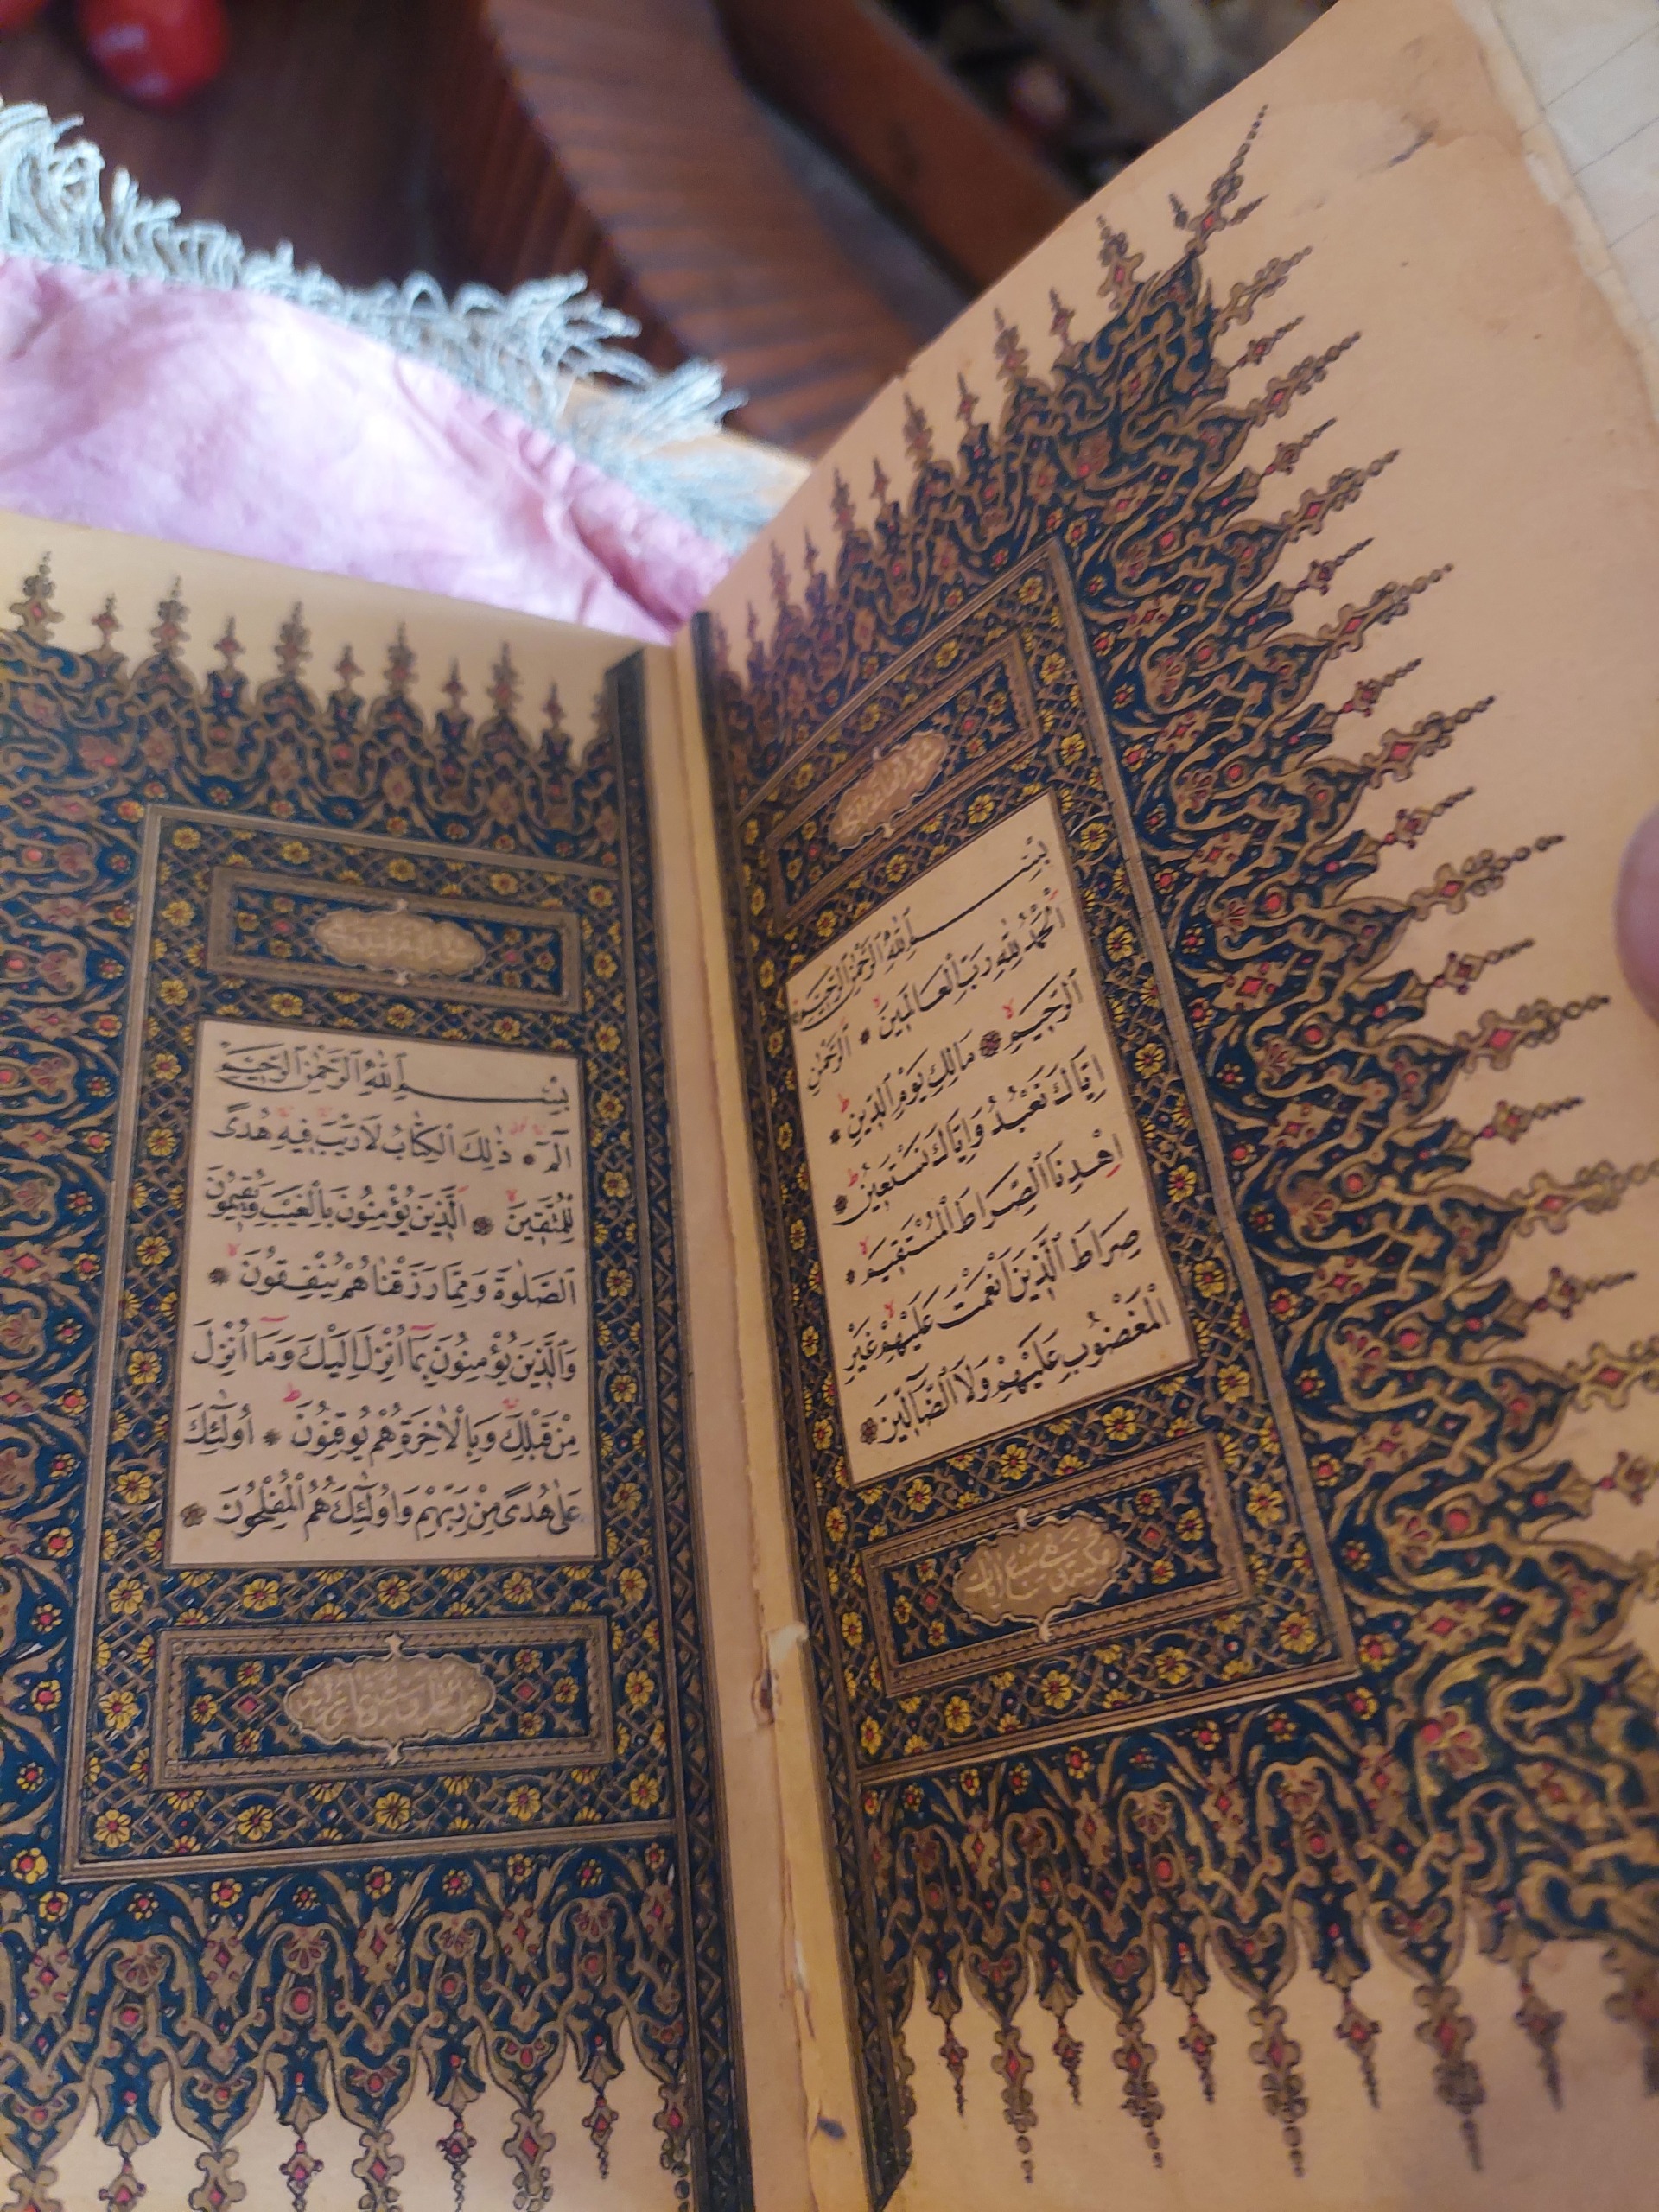 بِسْمِ ٱللّٰهِ ٱلرَّحْمٰنِ ٱلرَّحِيمِ
اَلْحَمْدُ لِلّٰهِ رَبِّ الْعَالَمِينَ ۙ * اَلرَّحْمٰنِ
ٱلرَّحِيمِ ۙ * مَالِكِ يَوْمِ ٱلدِّينِ ۜ *
اِيَّاكَ نَعْبُدُ وَاِيَّاكَ نَسْتَعِينُ ۜ *
اِهْدِنَا ٱلصِّرَاطَ الْمُسْتَقِيمَ ۙ *
صِرَاطَ ٱلَّذِينَ اَنْعَمْتَ عَلَيْهِمْ ۙ غَيْرِ
الْمَغْضُوبِ عَلَيْهِمْ وَلَا ٱلضَّٓالِّينَ *
بِسْمِ ٱللّٰهِ ٱلرَّحْمٰنِ ٱلرَّحِيمِ
الٓمٓ * ذٰلِكَ الْكِتَابُ لَا رَيْبَ فِيهِ هُدًى
لِلْمُتَّقِينَ ۙ * اَلَّذِينَ يُؤْمِنُونَ بِالْغَيْبِ وَيُقِيمُونَ
ٱلصَّلٰوةَ وَمِمَّا رَزَقْنَاهُمْ يُنْفِقُونَ ۙ *
وَٱلَّذِينَ يُؤْمِنُونَ بِمَٓا اُنْزِلَ اِلَيْكَ وَمَٓا اُنْزِلَ
مِنْ قَبْلِكَ وَبِالْاٰخِرَةِ هُمْ يُوقِنُونَ ۜ * اُولٰٓئِكَ
عَلٰى هُدًى مِنْ رَبِّهِمْ وَاُولٰٓئِكَ هُمُ الْمُفْلِحُونَ *